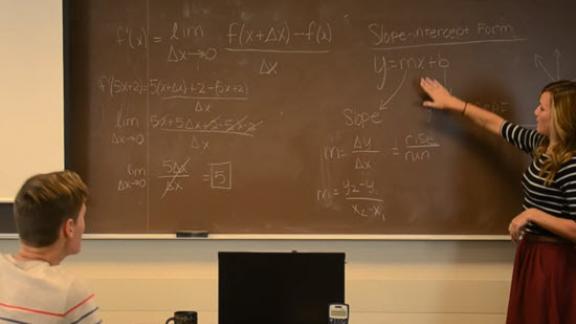 f'(x) = lim Δx→0 f(x+Δx)-f(x) / Δx
f'(5x+2) = 5(x+Δx)+2-(5x+2) / Δx
lim Δx→0 5x+5Δx+2-5x-2 / Δx
lim Δx→0 5Δx / Δx = 5
Slope-intercept Form
y=mx+b
Slope
m = Δy / Δx = rise / run
m = y₂-y₁ / x₂-x₁